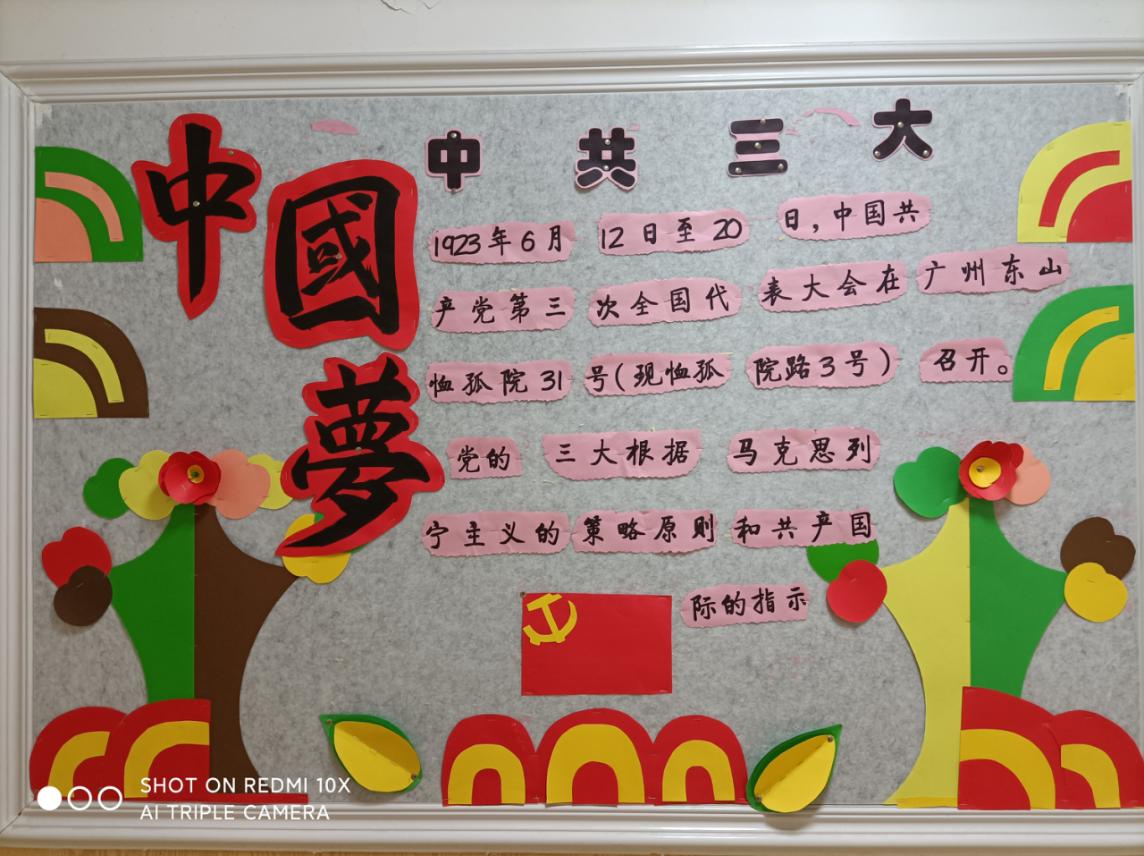 中國夢
中共三大
1923年6月12日至20日,中国共
产党第三次全国代表大会在广州东山
恤孤院31号(现恤孤院路3号)召开。
党的三大根据马克思列
宁主义的策略原则和共产国
际的指示
SHOT ON REDMI 10X
AI TRIPLE CAMERA